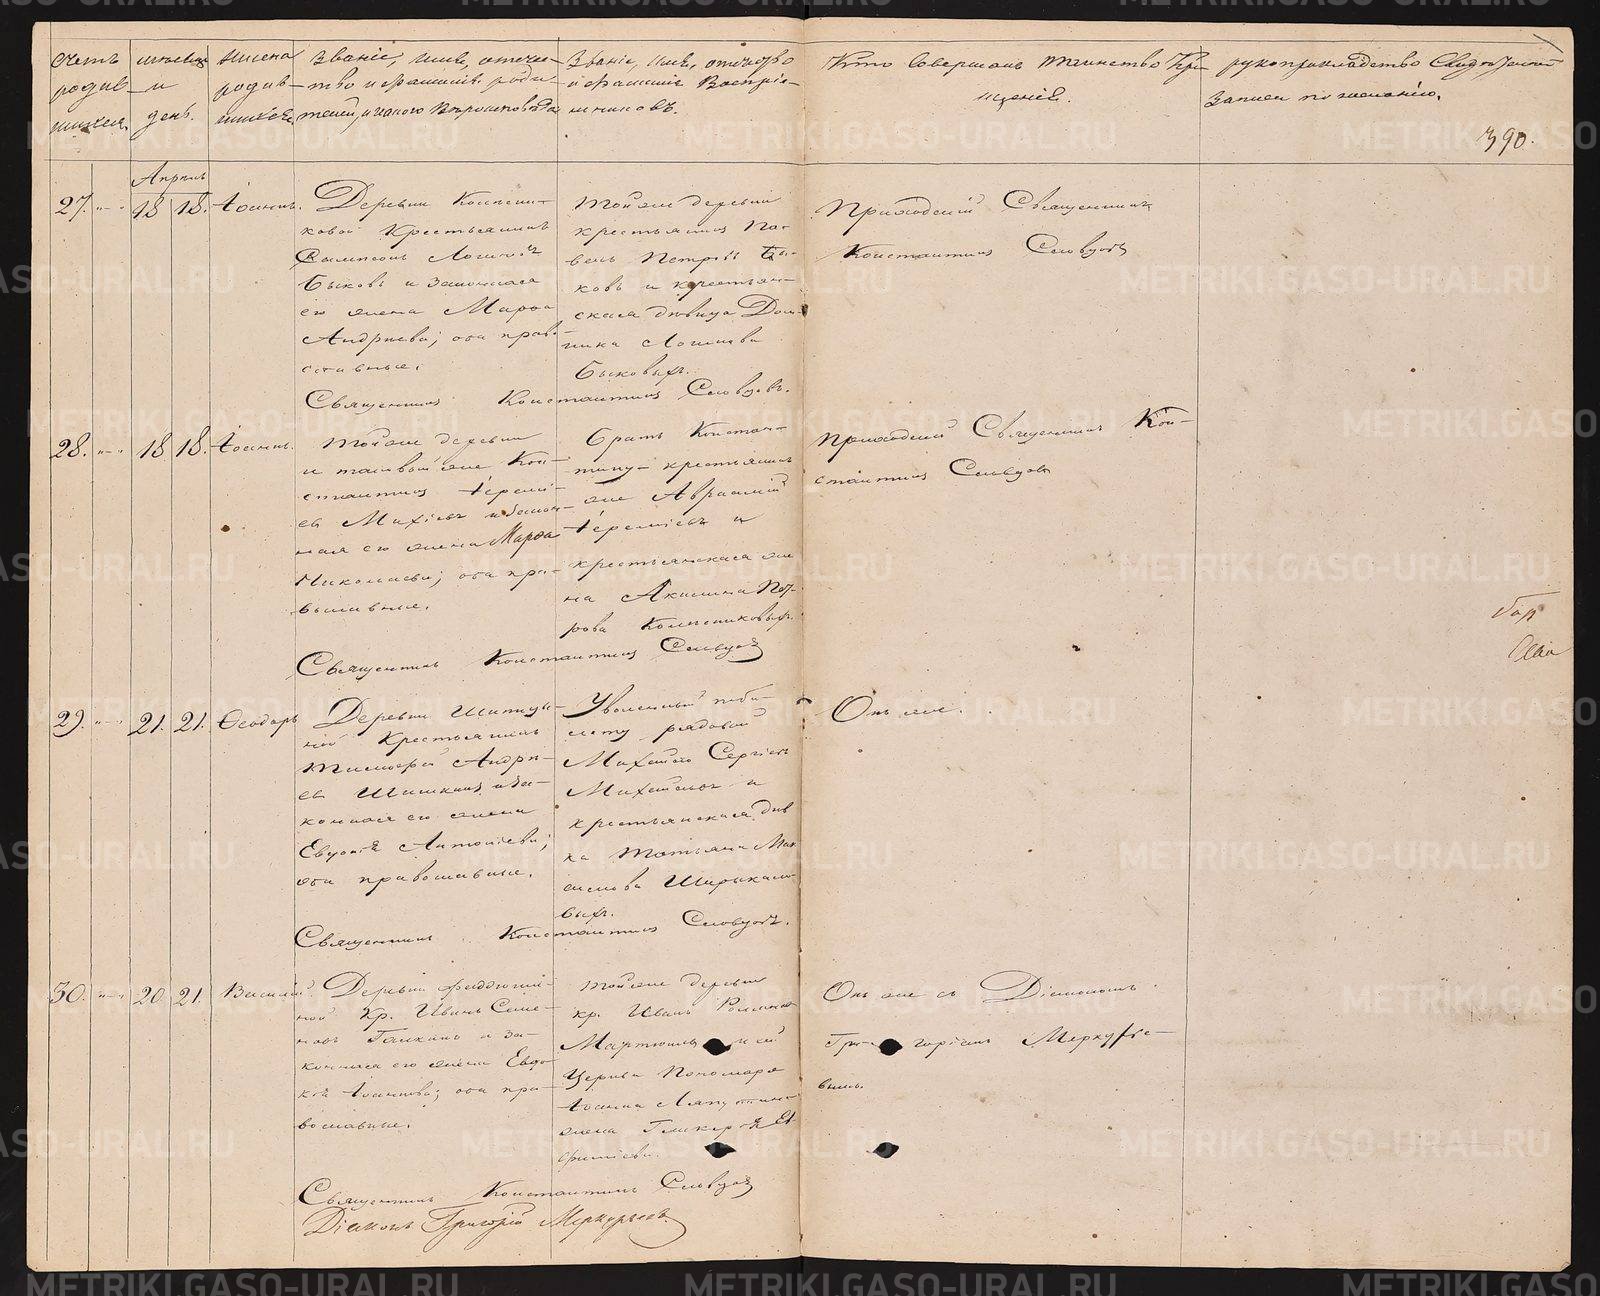 счетъ родив- шихся.
мѣсяцъ и день.
Имена родив- шихся.
Званіе, имя, отече-
ство и фамилія роди-
телей, и какого вѣроисповѣда
Званіе, имя, отечество
и фамилія Воспріе-
мниковъ.
Кто совершалъ таинство Кре-
щенія.
рукоприкладство Свидѣтелей
записи по желанію.
390.
Апрѣль
27. 18 18. Іоаннъ.
Деревни Колпени-
ковой Крестьянинъ
Сампсонъ Логиновъ
Быковъ и законная
его жена Марѳа
Андреева; оба право-
славные.
Тойже деревни
крестьянинъ Па-
велъ Петровъ Бы-
ковъ и крестьян-
ская дѣвица Дом-
ника Логинова
Быковыхъ.
Приходскій Священникъ
Константинъ Словцовъ
Священникъ Константинъ Словцовъ.
28. 18 18. Іоаннъ.
Тойже деревни
и таковый же Кон-
стантинъ Іеремі-
евъ Михіевъ и закон-
ная его жена Марѳа
Николаева; оба пра-
вославные.
братъ Констан-
тину крестьянинъ
же Аврамій
Іереміевъ и
крестьянская же-
на Акилина Пет-
рова Колпениковыхъ.
Приходскій Священникъ Кон-
стантинъ Словцовъ
Священникъ Константинъ Словцовъ
29. 21. 21. Ѳеодоръ
Деревни Шипицы-
ной Крестьянинъ
Тимофей Андре-
евъ Шишкинъ и за-
конная его жена
Евдокія Антоніева;
оба православные.
Уволенный поби-
лету рядовый
Михаило Сергіевъ
Михайловъ и
крестьянская дѣв-
ка Татьяна Мак-
симова Ширыкало-
выхъ.
Онъ же.
Священникъ Константинъ Словцовъ.
30. 20 21. Василій.
Деревни Фаддюши-
ной Кр. Иванъ Симе-
новъ Галкинъ и за-
конная его жена Евдо-
кія Іоаннова; оба пра-
вославные.
тойже деревни
кр. Иванъ Романовъ
Мартюшевъ и сей
Церкви Пономаря
Іоанна Ляпустина
жена Гликерія Ев-
фиміева.
Онъ же съ Діакономъ
Григоріемъ Меркурье-
вымъ.
Священникъ Константинъ Словцовъ
Діаконъ Григорій Меркурьевъ.
METRIKI.GASO-URAL.RU